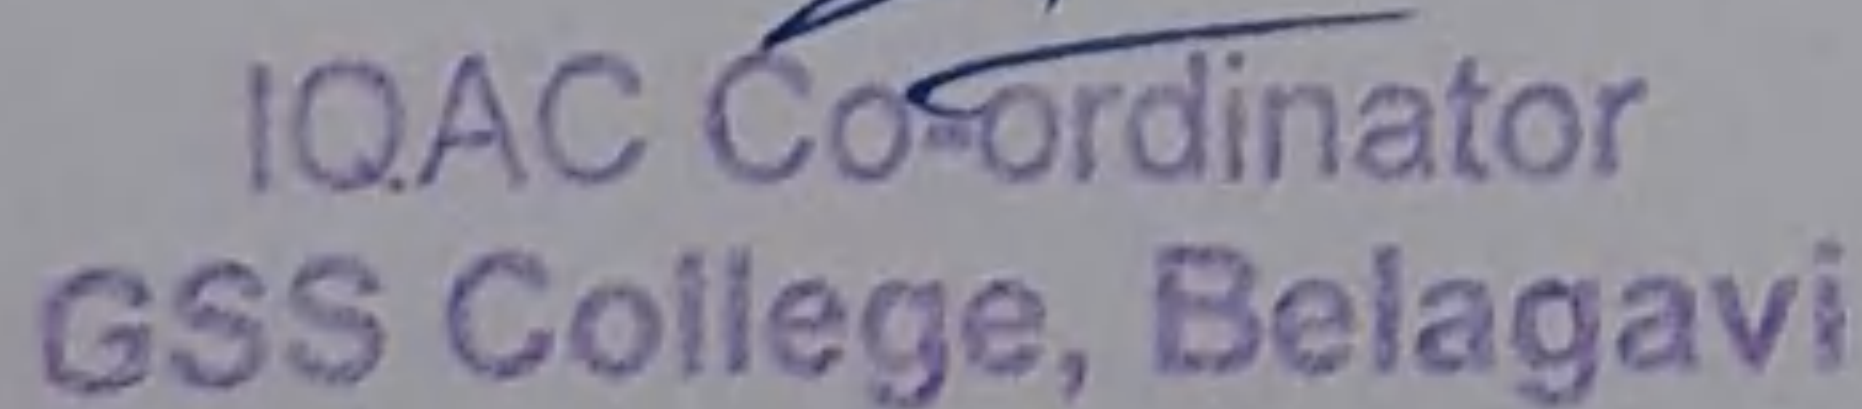 IQAC Co-ordinator
GSS College, Belagavi